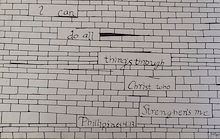 I can
do all
things through
Christ who
Strengthens me
Phillipians 4:13